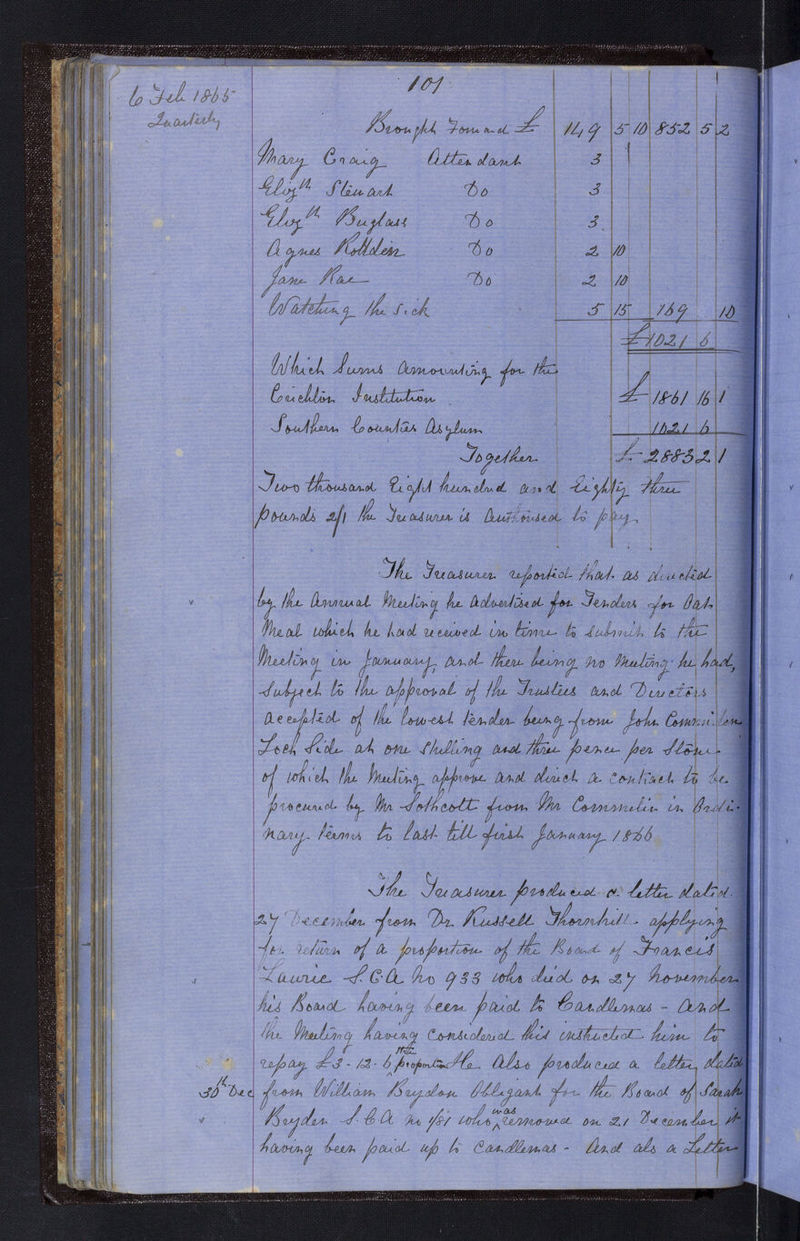 101
6 Feb 1865
Quarterly
Brought Forward £ 149 5 10 852 5 2
Mary Craig Attendant 3
Elizth Steuart Do 3
Elizth Buglass Do 3
Agnes Do 2 10
Jane Rae Do 2 10
Watching the Sick 5 15 169 10
£1021 6
Which Sums amounting for the
Crichton Institution £ 1861 16 1
Southern Counties Asylum 1021 6
Together £ 2883 2 1
Two thousand Eight hundred and Eighty three
pounds 2/1 the Treasurer is Authorised to pay.
The Treasurer reported that as directed
by the Annual Meeting he advertised for Tenders for Oat
Meal which he had received in time to submit to the
Meeting in January, and there being no Meeting he had,
Subject to the approval of the Trustees and Directors
accepted of the lowest tender being from John
Loch Side at one shilling and three pence per Stone
of which the Meeting approve and direct a contract to be
procured by Mr Sothcott from Mr Commelin in Ordi-
nary terms to last till first January 1866
The Treasurer produced a letter dated
27 December from Dr Russell Thornhill - applying
for return of a proportion of the Board of Francis
Laurie S.C.A No 933 who died on 27 November
his Board having been paid to Candlemas - And
the Meeting having considered this instructed him to
repay £3-12-6 the proportion He also produced a letter dated
30th Dec from William Brydon Obligant for the Board of Sarah
Brydon S.C.A no who was removed on 21 December it
having been paid up to Candlemas - And als a Letter